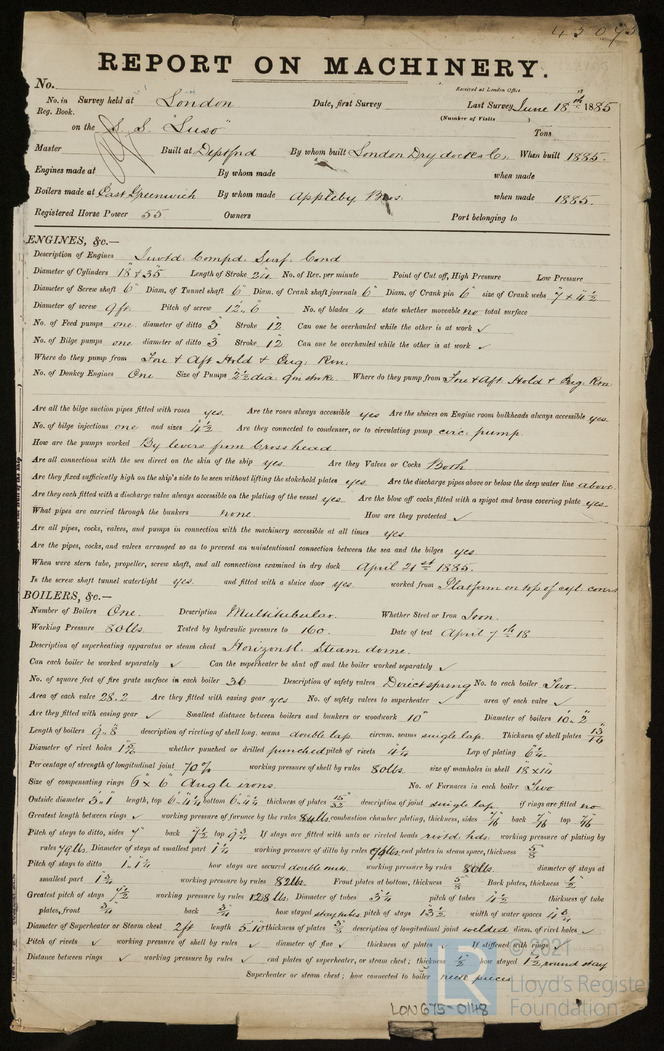 REPORT ON MACHINERY.
No.
Received at London Office
No. in Survey held at London Date, first Survey Last Survey June 18th 1885
Reg. Book. (Number of Visits )
on the S. S. "Luso" Tons
Master Built at Deptford By whom built London Dry docks Co. When built 1885.
Engines made at By whom made when made
Boilers made at East Greenwich By whom made Appleby Bros. when made 1885.
Registered Horse Power 55 Owners Port belonging to
ENGINES, &c.—
Description of Engines Invtd. Compd. Surf. Cond
Diameter of Cylinders 18" & 35" Length of Stroke 24 No. of Rev. per minute Point of Cut off, High Pressure Low Pressure
Diameter of Screw shaft 6" Diam. of Tunnel shaft 6" Diam. of Crank shaft journals 6" Diam. of Crank pin 6" size of Crank webs 7 x 4 1/2
Diameter of screw 9ft. Pitch of screw 12.6 No. of blades 4 state whether moveable no total surface
No. of Feed pumps one diameter of ditto 3" Stroke 12" Can one be overhauled while the other is at work ✓
No. of Bilge pumps one diameter of ditto 3" Stroke 12" Can one be overhauled while the other is at work ✓
Where do they pump from Fore & Aft Hold & Eng. Rm.
No. of Donkey Engines One Size of Pumps 2 1/2 dia. 9in stroke Where do they pump from Fore & Aft. Hold & Eng. Rm
Are all the bilge suction pipes fitted with roses yes. Are the roses always accessible yes Are the sluices on Engine room bulkheads always accessible yes.
No. of bilge injections one and sizes 4 1/2 Are they connected to condenser, or to circulating pump circ. pump.
How are the pumps worked By levers from Crosshead
Are all connections with the sea direct on the skin of the ship yes Are they Valves or Cocks Both
Are they fixed sufficiently high on the ship's side to be seen without lifting the stokehold plates yes Are the discharge pipes above or below the deep water line above
Are they each fitted with a discharge valve always accessible on the plating of the vessel yes Are the blow off cocks fitted with a spigot and brass covering plate yes
What pipes are carried through the bunkers none. How are they protected ✓
Are all pipes, cocks, valves, and pumps in connection with the machinery accessible at all times yes
Are the pipes, cocks, and valves arranged so as to prevent an unintentional connection between the sea and the bilges yes
When were stern tube, propeller, screw shaft, and all connections examined in dry dock April 21st 1885.
Is the screw shaft tunnel watertight yes and fitted with a sluice door yes. worked from Platform on top of cyl. covers
BOILERS, &c.—
Number of Boilers One. Description Multitubular. Whether Steel or Iron Iron.
Working Pressure 80lbs. Tested by hydraulic pressure to 160. Date of test April 7th 18
Description of superheating apparatus or steam chest Horizontl. Steam dome.
Can each boiler be worked separately ✓ Can the superheater be shut off and the boiler worked separately ✓
No. of square feet of fire grate surface in each boiler 36 Description of safety valves Direct spring No. to each boiler Two.
Area of each valve 28.2 Are they fitted with easing gear yes No. of safety valves to superheater ✓ area of each valve ✓
Are they fitted with easing gear ✓ Smallest distance between boilers and bunkers or woodwork 10" Diameter of boilers 10. 2
Length of boilers 9. 8 description of riveting of shell long. seams double lap circum. seams single lap. Thickness of shell plates 13/16
Diameter of rivet holes 1 1/4 whether punched or drilled punched pitch of rivets 4 1/4 Lap of plating 6 1/4
Per centage of strength of longitudinal joint 70% working pressure of shell by rules 80lbs. size of manholes in shell 18 x 14
Size of compensating rings 6 x 6" Angle irons. No. of Furnaces in each boiler Two
Outside diameter 3.1 length, top 6.4 1/4 bottom 6.4 1/4 thickness of plates 15/32 description of joint single lap if rings are fitted no
Greatest length between rings ✓ working pressure of furnace by the rules 84lbs. combustion chamber plating, thickness, sides 7/16 back 7/16 top 7/16
Pitch of stays to ditto, sides 7" back 7 1/2 top 9 3/4 If stays are fitted with nuts or riveted heads rivtd. hds. working pressure of plating by
rules 79lbs. Diameter of stays at smallest part 1 1/4 working pressure of ditto by rules end plates in steam space, thickness 5/8
Pitch of stays to ditto how stays are secured double nuts. working pressure by rules 80lbs. diameter of stays at
smallest part 1 3/4 working pressure by rules 82lbs. Front plates at bottom, thickness 5/8 Back plates, thickness 1/2
Greatest pitch of stays 7 1/2 working pressure by rules 128lbs. Diameter of tubes 3 1/4 pitch of tubes 4 1/2 thickness of tube
plates, front 3/4 back 3/4 how stayed stay tubes. pitch of stays 13 1/2 width of water spaces 4 3/4
Diameter of Superheater or Steam chest 2ft length 5.10 thickness of plates 3/8 description of longitudinal joint welded diam. of rivet holes ✓
Pitch of rivets ✓ working pressure of shell by rules ✓ diameter of flue ✓ thickness of plates If stiffened with rings ✓
Distance between rings ✓ working pressure by rules ✓ end plates of superheater, or steam chest; thickness 1/2 how stayed 1 1/2 round stay
Superheater or steam chest; how connected to boiler neck pieces
LON675-0148
© 2021
Lloyd's Register
Foundation